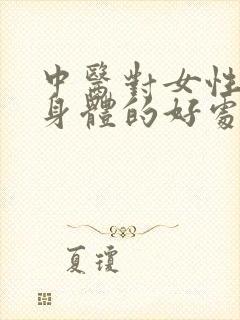 中醫對女性
身體的好處
夏瓊